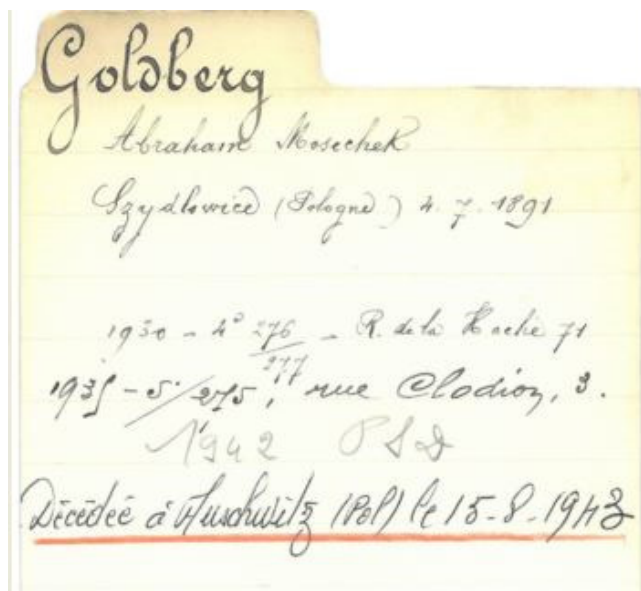 Goldberg
Abraham Mosechek
Szydlowice (Pologne) 4.7.1891
1930 - 4° 276 - R. de la Hache 71
277
1935 - 5°/275, rue Clodion, 3.
1942 PSD
Décédée à Auschwitz (Pol) le 15-8-1943